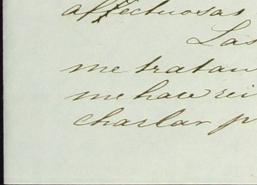 affectuosas
Las
me tratan
me han rei
charlar p